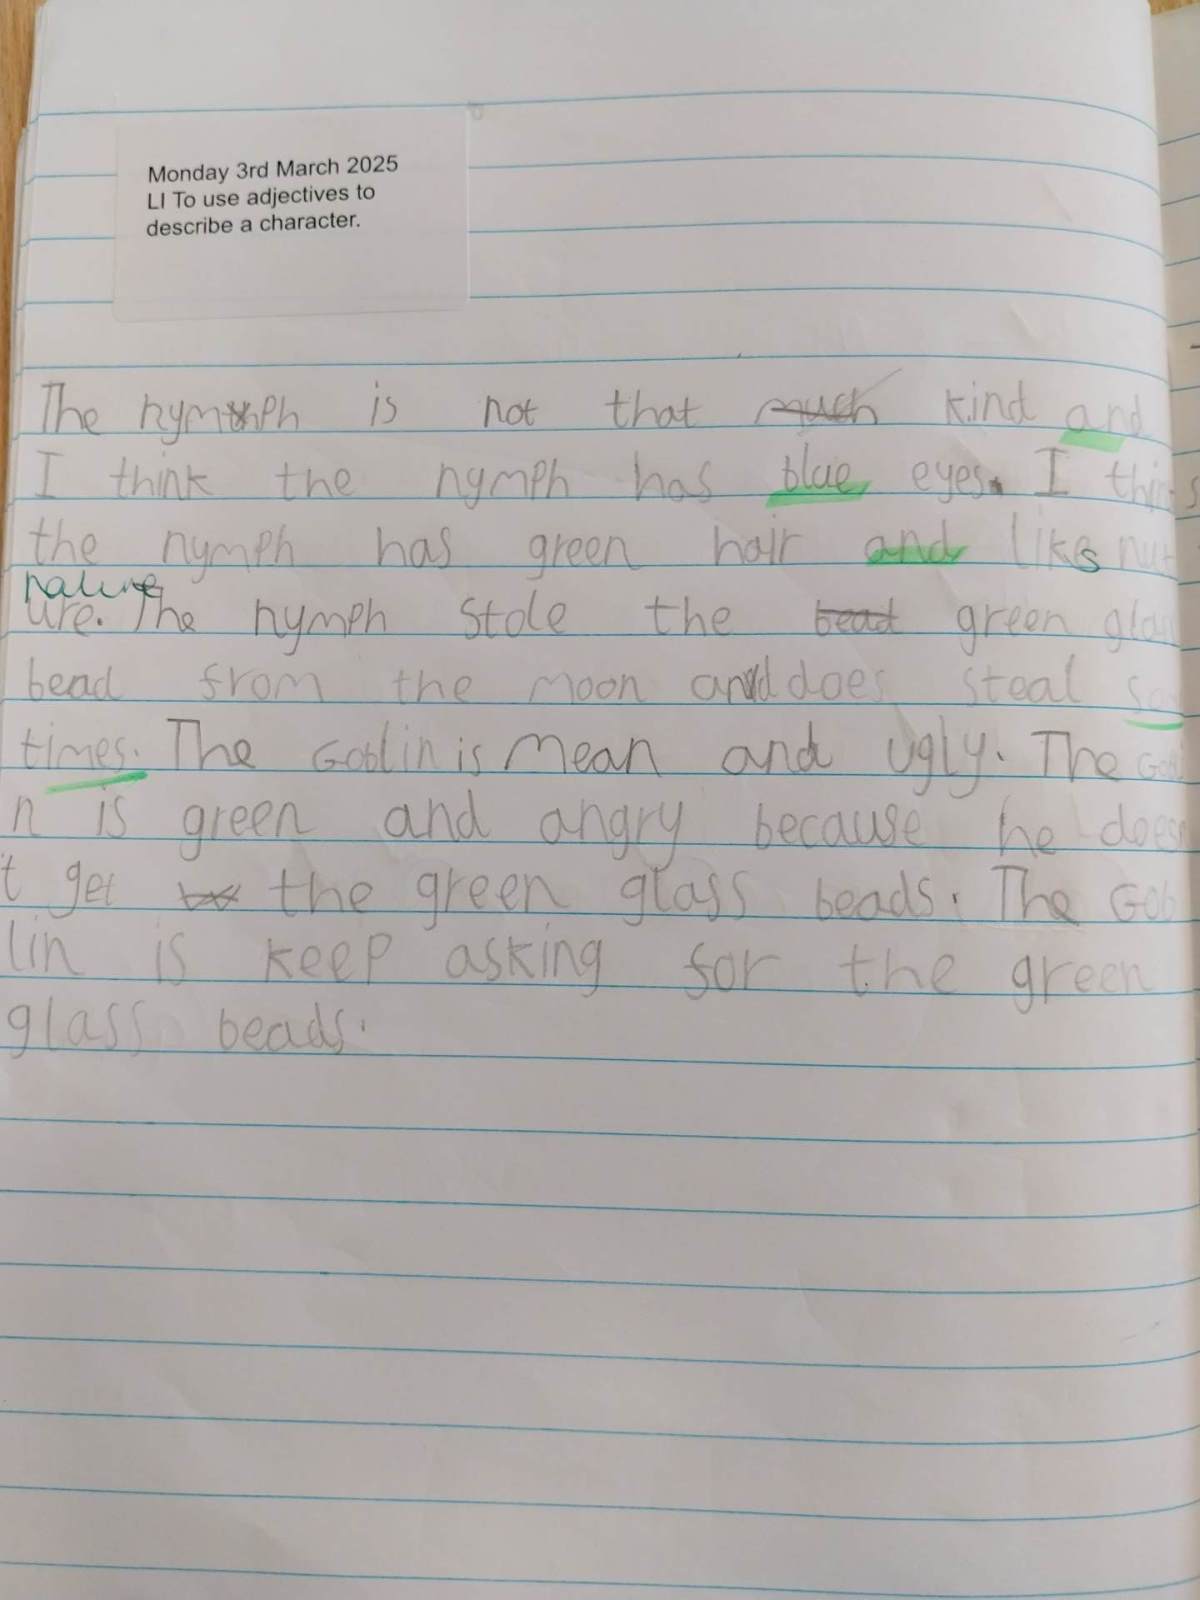 Monday 3rd March 2025
LI To use adjectives to
describe a character.
The nymph is not that much kind and
I think the nymph has blue eyes. I think
the nymph has green hair and likes nut
nature
ure. The nymph stole the bead green glass
bead from the moon and does steal
times. The Goblin is mean and ugly. The Gobli
n is green and angry because he does
t get the green glass beads. The Gob
lin is keep asking for the green
glass beads.